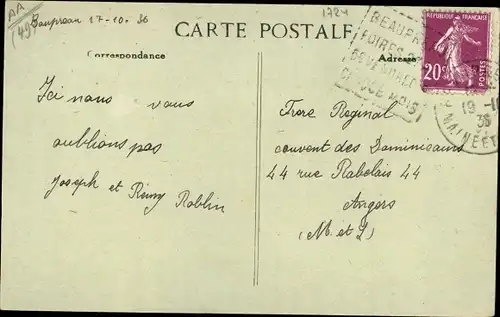 AA
(49)
Beaupreau 17-10. 36
1724
CARTE POSTALE
Correspondance
Adresse
BEAUPR
FOIRES
CHAQUE MOIS
REPUBLIQUE FRANÇAISE
POSTES
20c
19
36
MAINE ET
Ici nous vous
oublions pas
Joseph et Rémy Roblin
Frère Reginal
couvent des Dominicains
44 rue Rabelais 44
Angers
(M. et L)